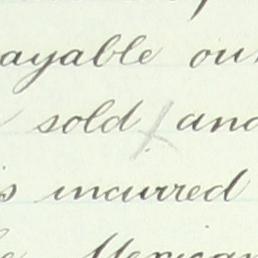 ayable out
sold and
is incurred
Mexican